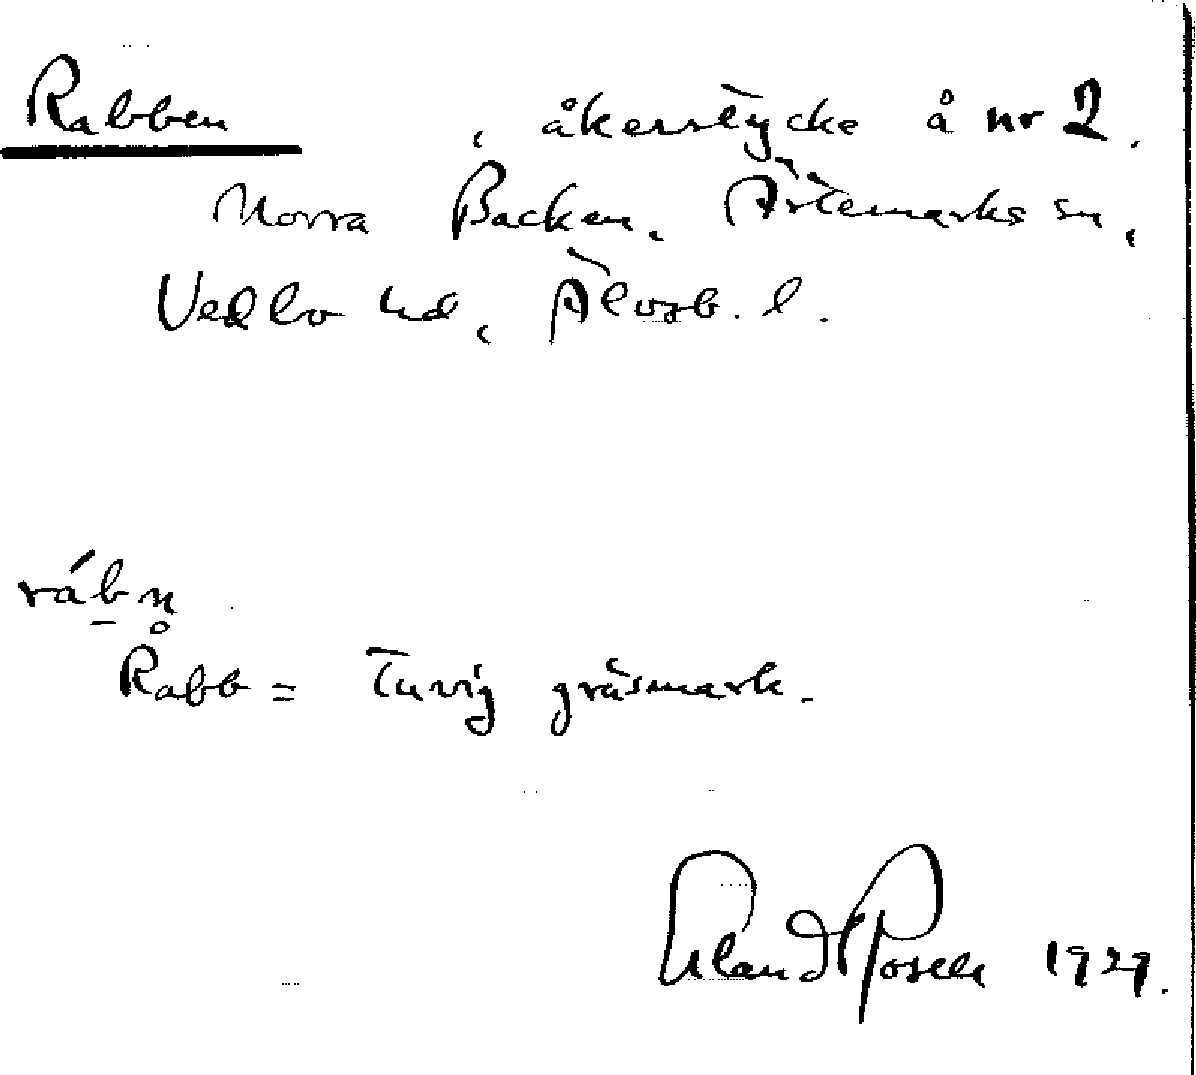 Rabben, åkerstycke å nr 2.
Norra Backen, Ärtemarks sn,
Vedbo hd, Älvsb. l.
rábn
Rabb = Tuvig gräsmark.
Erland Rosell 1929.